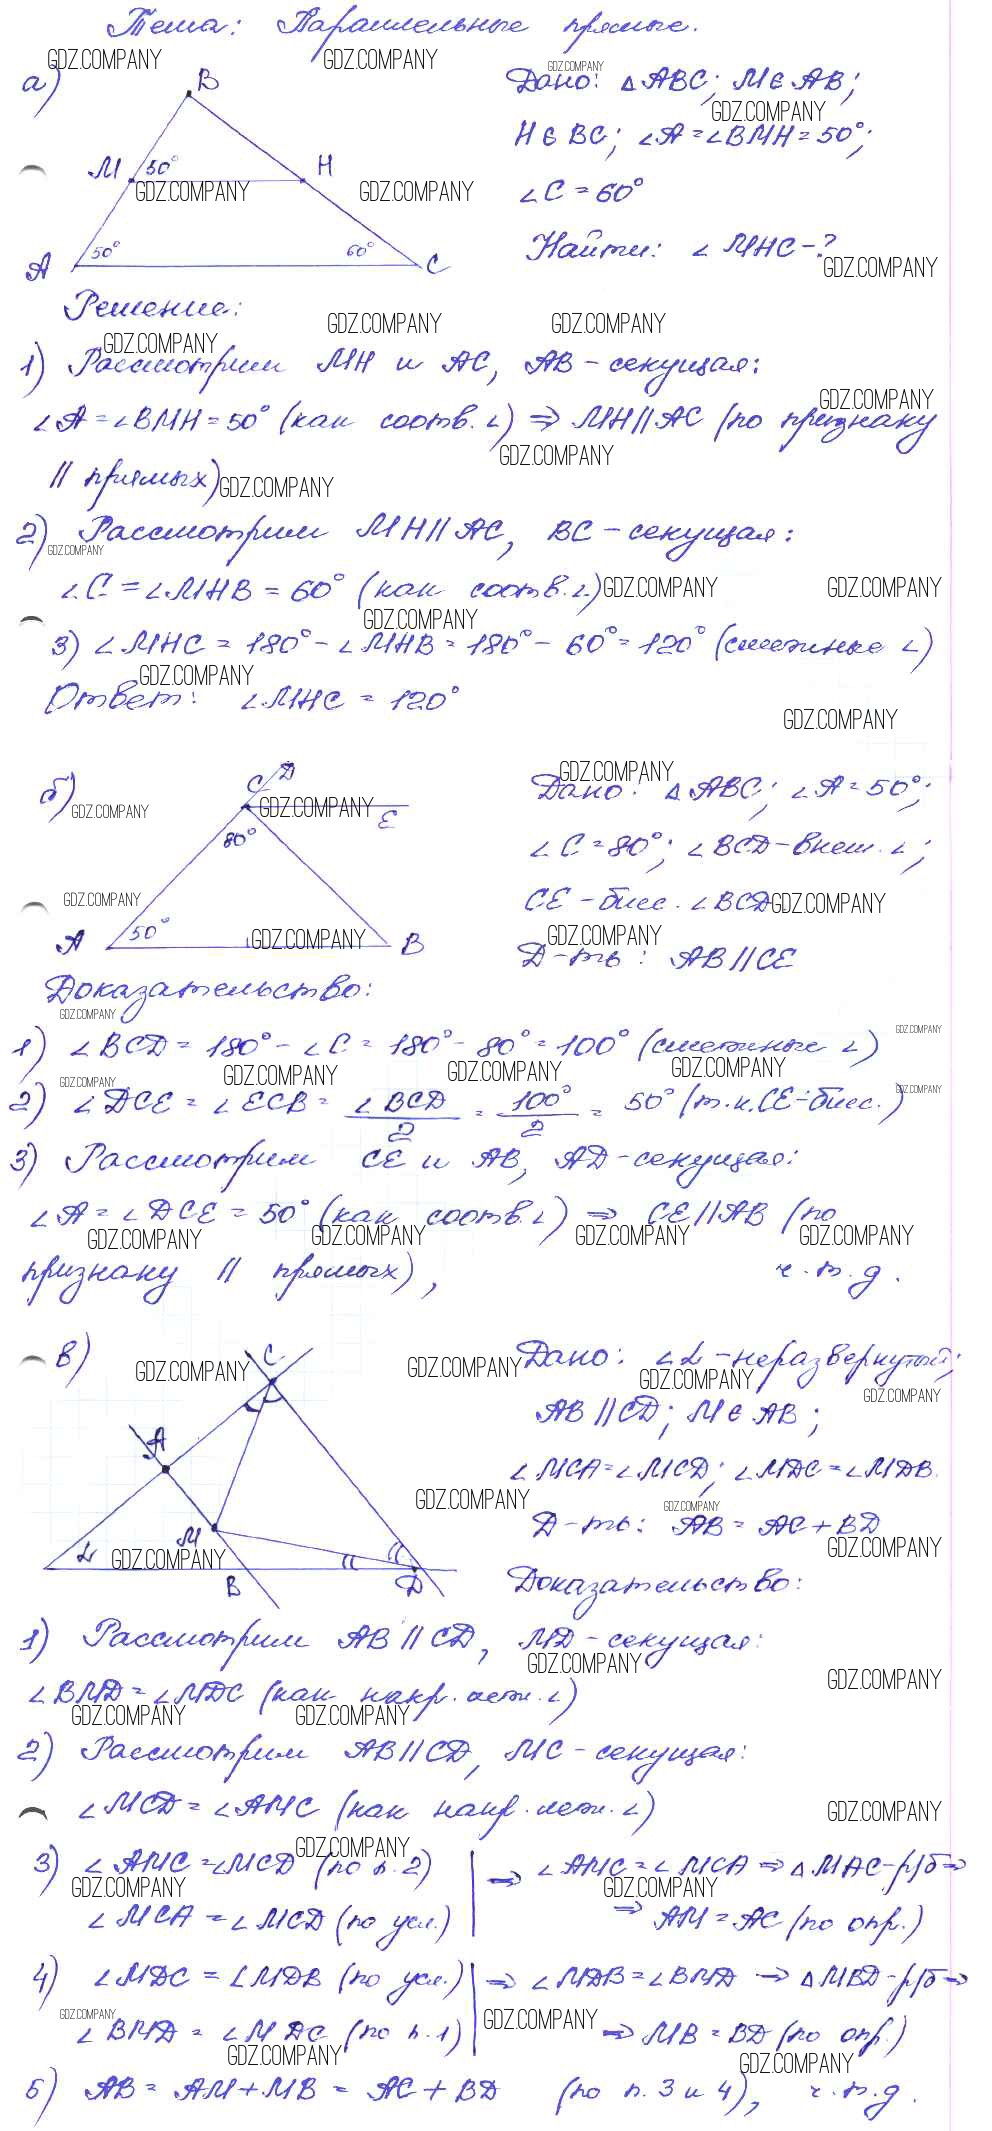 Тема: Параллельные прямые.
а)
B
M 50° H
A 50° 60° C
Дано: △ABC; M∈AB;
H∈BC; ∠A=∠BMH=50°;
∠C=60°
Найти: ∠MHC-?
Решение:
1) Рассмотрим MH и AC, AB-секущая:
∠A=∠BMH=50° (как соотв.∠) ⇒ MH||AC (по признаку
|| прямых)
2) Рассмотрим MH||AC, BC-секущая:
∠C=∠MHB=60° (как соотв.∠)
3) ∠MHC=180°-∠MHB=180°-60°=120° (смежные ∠)
Ответ: ∠MHC=120°
б)
C D
80° E
A 50° B
Дано: △ABC; ∠A=50°;
∠C=80°; ∠BCD-внеш.∠;
CE-бисс.∠BCD
Д-ть: AB||CE
Доказательство:
1) ∠BCD=180°-∠C=180°-80°=100° (смежные ∠)
2) ∠DCE=∠ECB=∠BCD/2=100°/2=50° (т.к.CE-бисс.)
3) Рассмотрим CE и AB, AD-секущая:
∠A=∠DCE=50° (как соотв.∠) ⇒ CE||AB (по
признаку || прямых), ч.т.д.
в)
C
A
M
α B D
Дано: ∠α-неразвернутый;
AB||CD; M∈AB;
∠MCA=∠MCD; ∠MDC=∠MDB.
Д-ть: AB=AC+BD
Доказательство:
1) Рассмотрим AB||CD, MD-секущая:
∠BMD=∠MDC (как накр.леж.∠)
2) Рассмотрим AB||CD, MC-секущая:
∠MCD=∠AMC (как накр.леж.∠)
3) ∠AMC=∠MCD (по п.2) | ⇒ ∠AMC=∠MCA ⇒ △MAC-р/б ⇒
∠MCA=∠MCD (по усл.) | ⇒ AM=AC (по опр.)
4) ∠MDC=∠MDB (по усл.) | ⇒ ∠MDB=∠BMD ⇒ △MBD-р/б ⇒
∠BMD=∠MDC (по п.1) | ⇒ MB=BD (по опр.)
5) AB=AM+MB=AC+BD (по п.3 и 4), ч.т.д.
GDZ.COMPANY